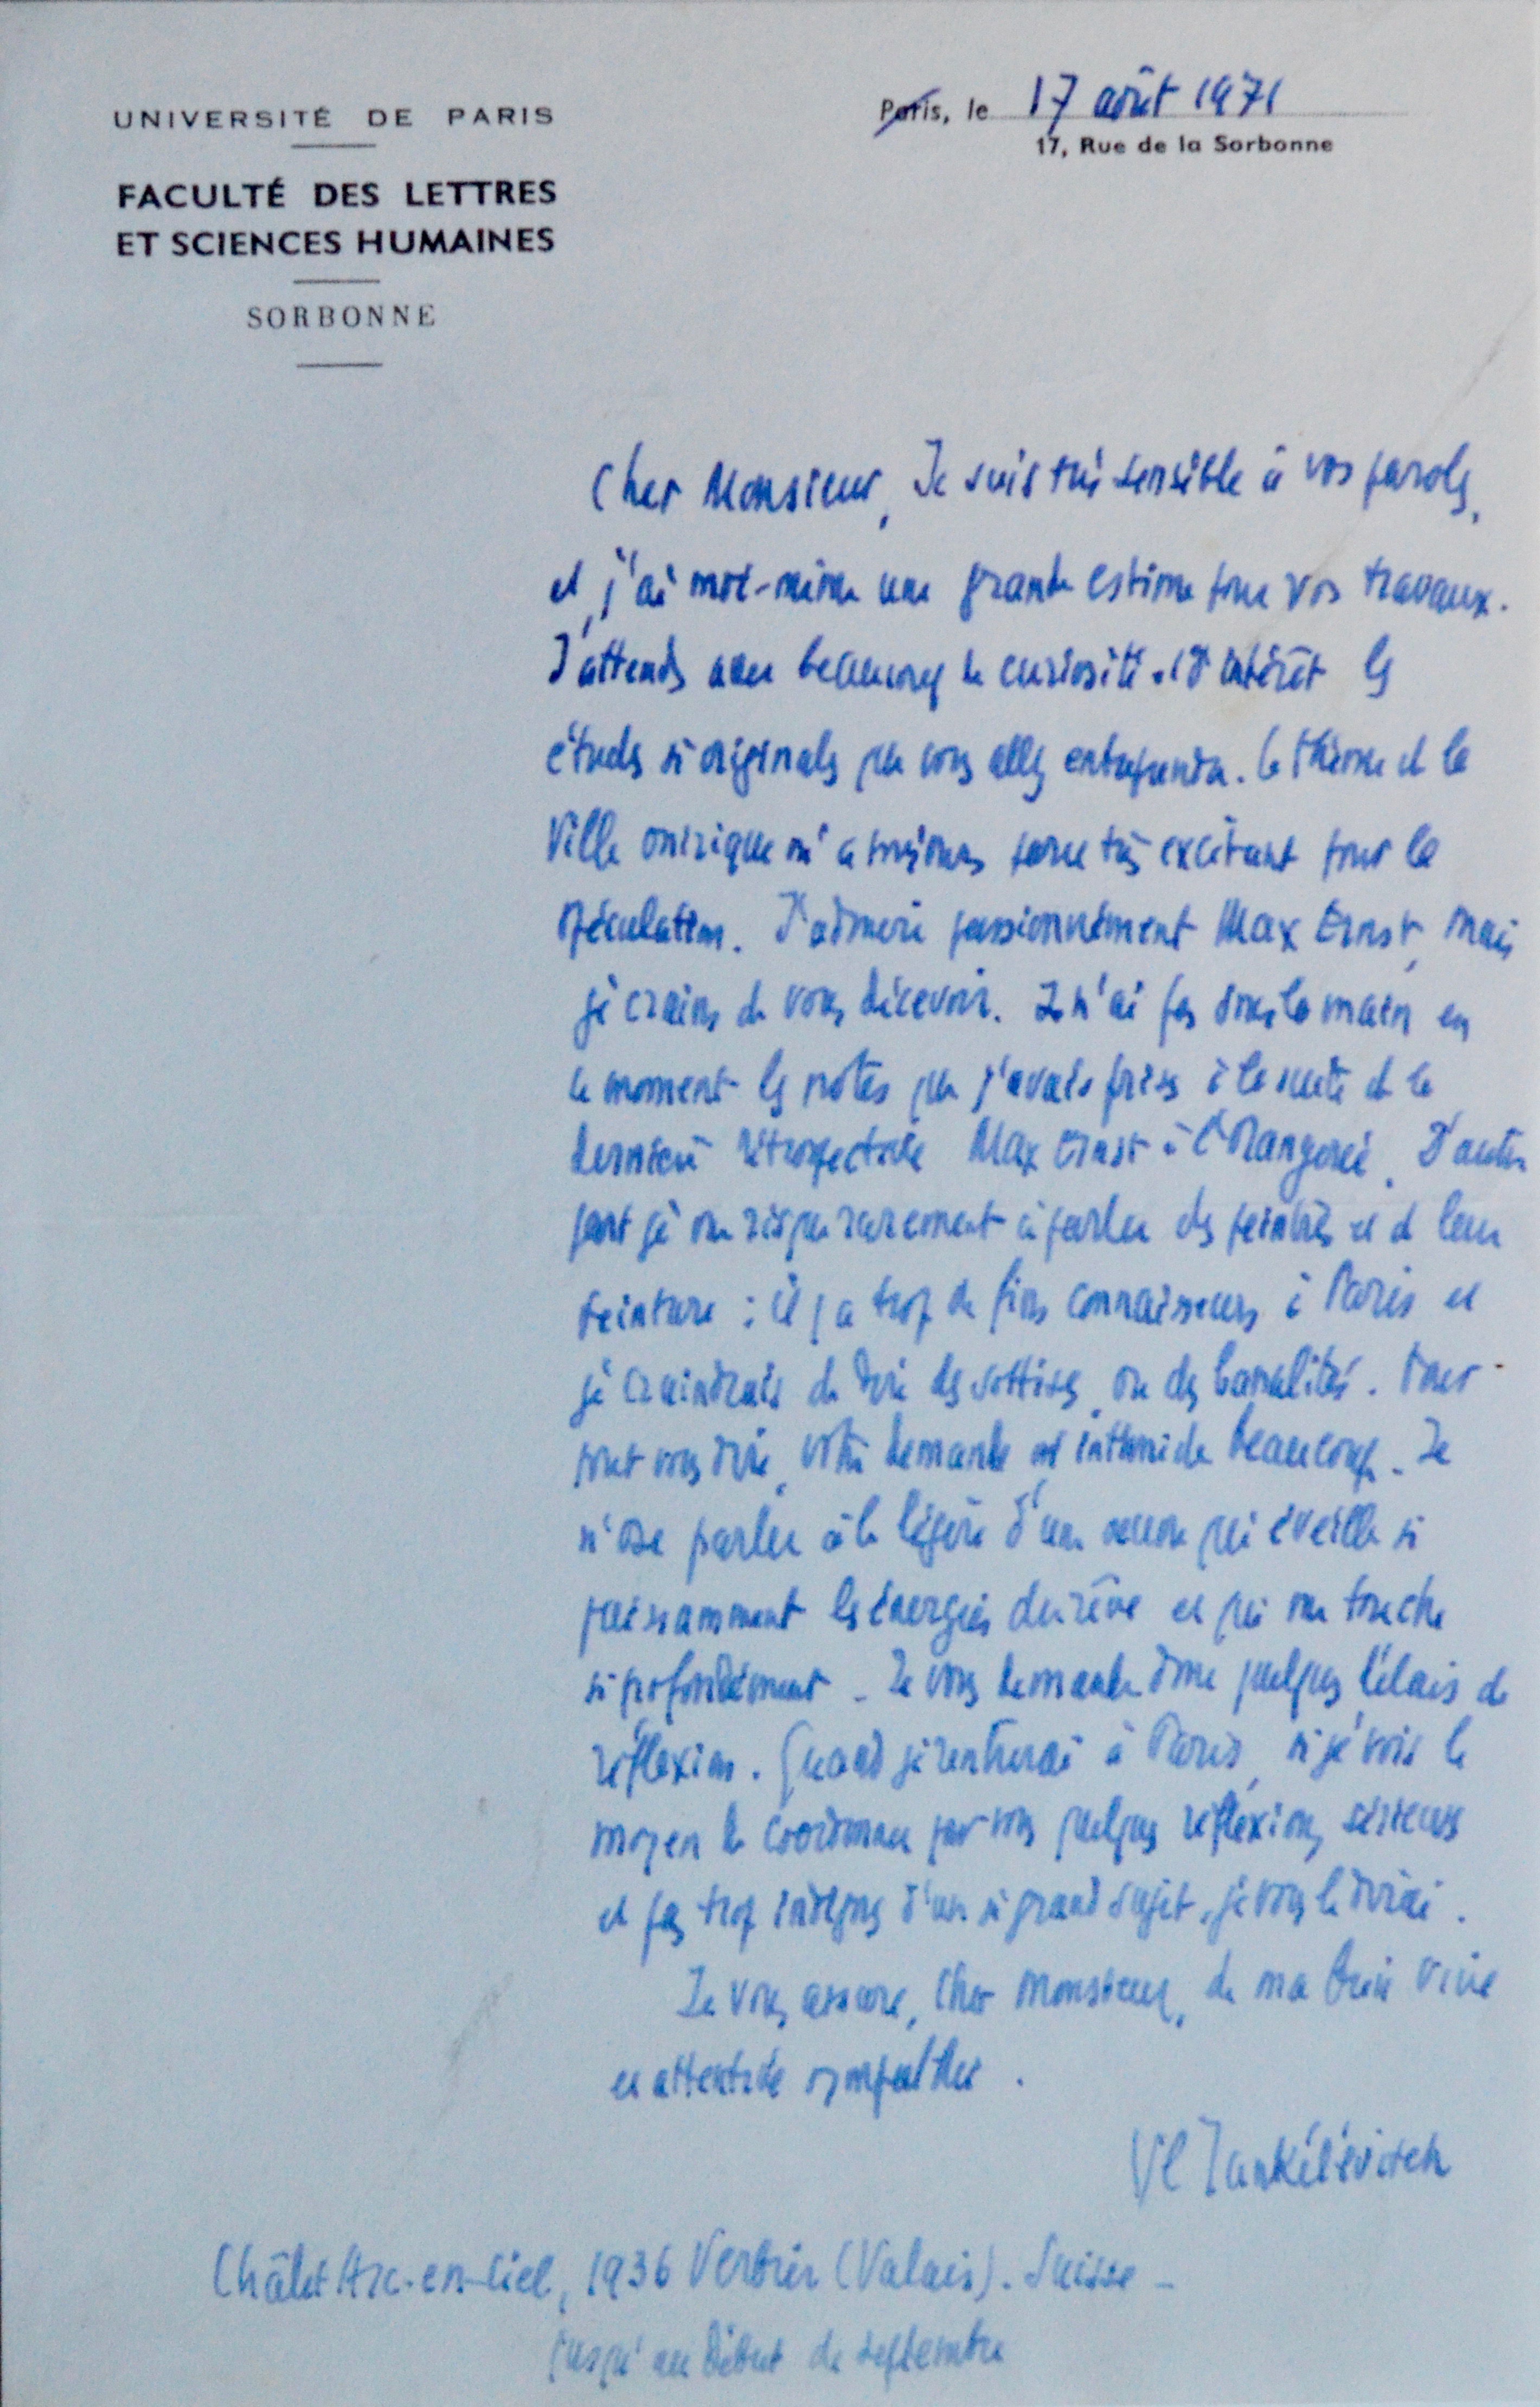 UNIVERSITÉ DE PARIS
FACULTÉ DES LETTRES
ET SCIENCES HUMAINES
SORBONNE
Paris, le 17 août 1971
17, Rue de la Sorbonne
Cher Monsieur, Je suis très sensible à vos paroles,
et j'ai moi-même une grande estime pour vos travaux.
J'attends avec beaucoup de curiosité et d'intérêt les
études si originales que vous allez entreprendre. Le thème de la
Ville onirique m'a toujours paru très excitant pour la
spéculation. J'admire passionnément Max Ernst, mais
je crains de vous décevoir. Je n'ai pas sous la main en
ce moment les notes que j'avais prises à la suite de la
dernière rétrospective Max Ernst à l'Orangerie. D'autre
part je me risque rarement à parler des peintres et de leur
peinture : il y a trop de fins connaisseurs à Paris et
je craindrais de dire des sottises, ou des banalités. Pour
tout vous dire, votre demande m'intimide beaucoup. Je
n'ose parler à la légère d'une œuvre qui éveille si
puissamment les énergies du rêve et qui me touche
si profondément. Je vous demande donc quelques délais de
réflexion. Quand je rentrerai à Paris, si je vois le
moyen de coordonner pour vous quelques réflexions sérieuses
et pas trop indignes d'un si grand sujet, je vous le dirai.
Je vous assure, cher Monsieur, de ma très vive
et attentive sympathie.
Vl Jankélévitch
Châlet Arc-en-Ciel, 1936 Verbier (Valais). Suisse -
jusqu'au début de septembre